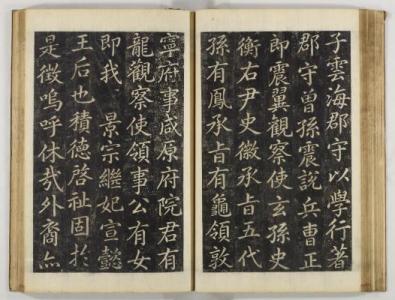 子雲海郡守以學行著
郡守曾孫震說兵曹正
郎震翼觀察使玄孫史
衡右尹史徽承旨五代
孫有鳳承旨有龜領敦
寧府事咸原府院君有
龍觀察使領事公有女
即我 景宗繼妃宣懿
王后也積德啓祉固於
是徵嗚呼休哉外裔亦